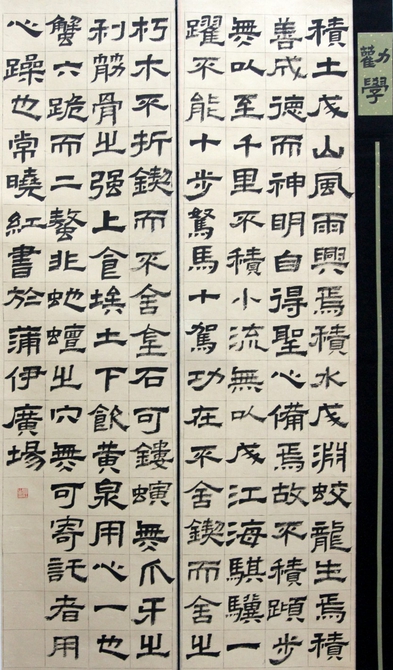 勸學
積土成山風雨興焉積水成淵蛟龍生焉積
善成德而神明自得聖心備焉故不積蹞步
無以至千里不積小流無以成江海騏驥一
躍不能十步駑馬十駕功在不舍鍥而舍之
朽木不折鍥而不舍金石可鏤螾無爪牙之
利筋骨之强上食埃土下飲黃泉用心一也
蟹六跪而二螯非虵蟺之穴無可寄託者用
心躁也常曉紅書於蒲伊廣場